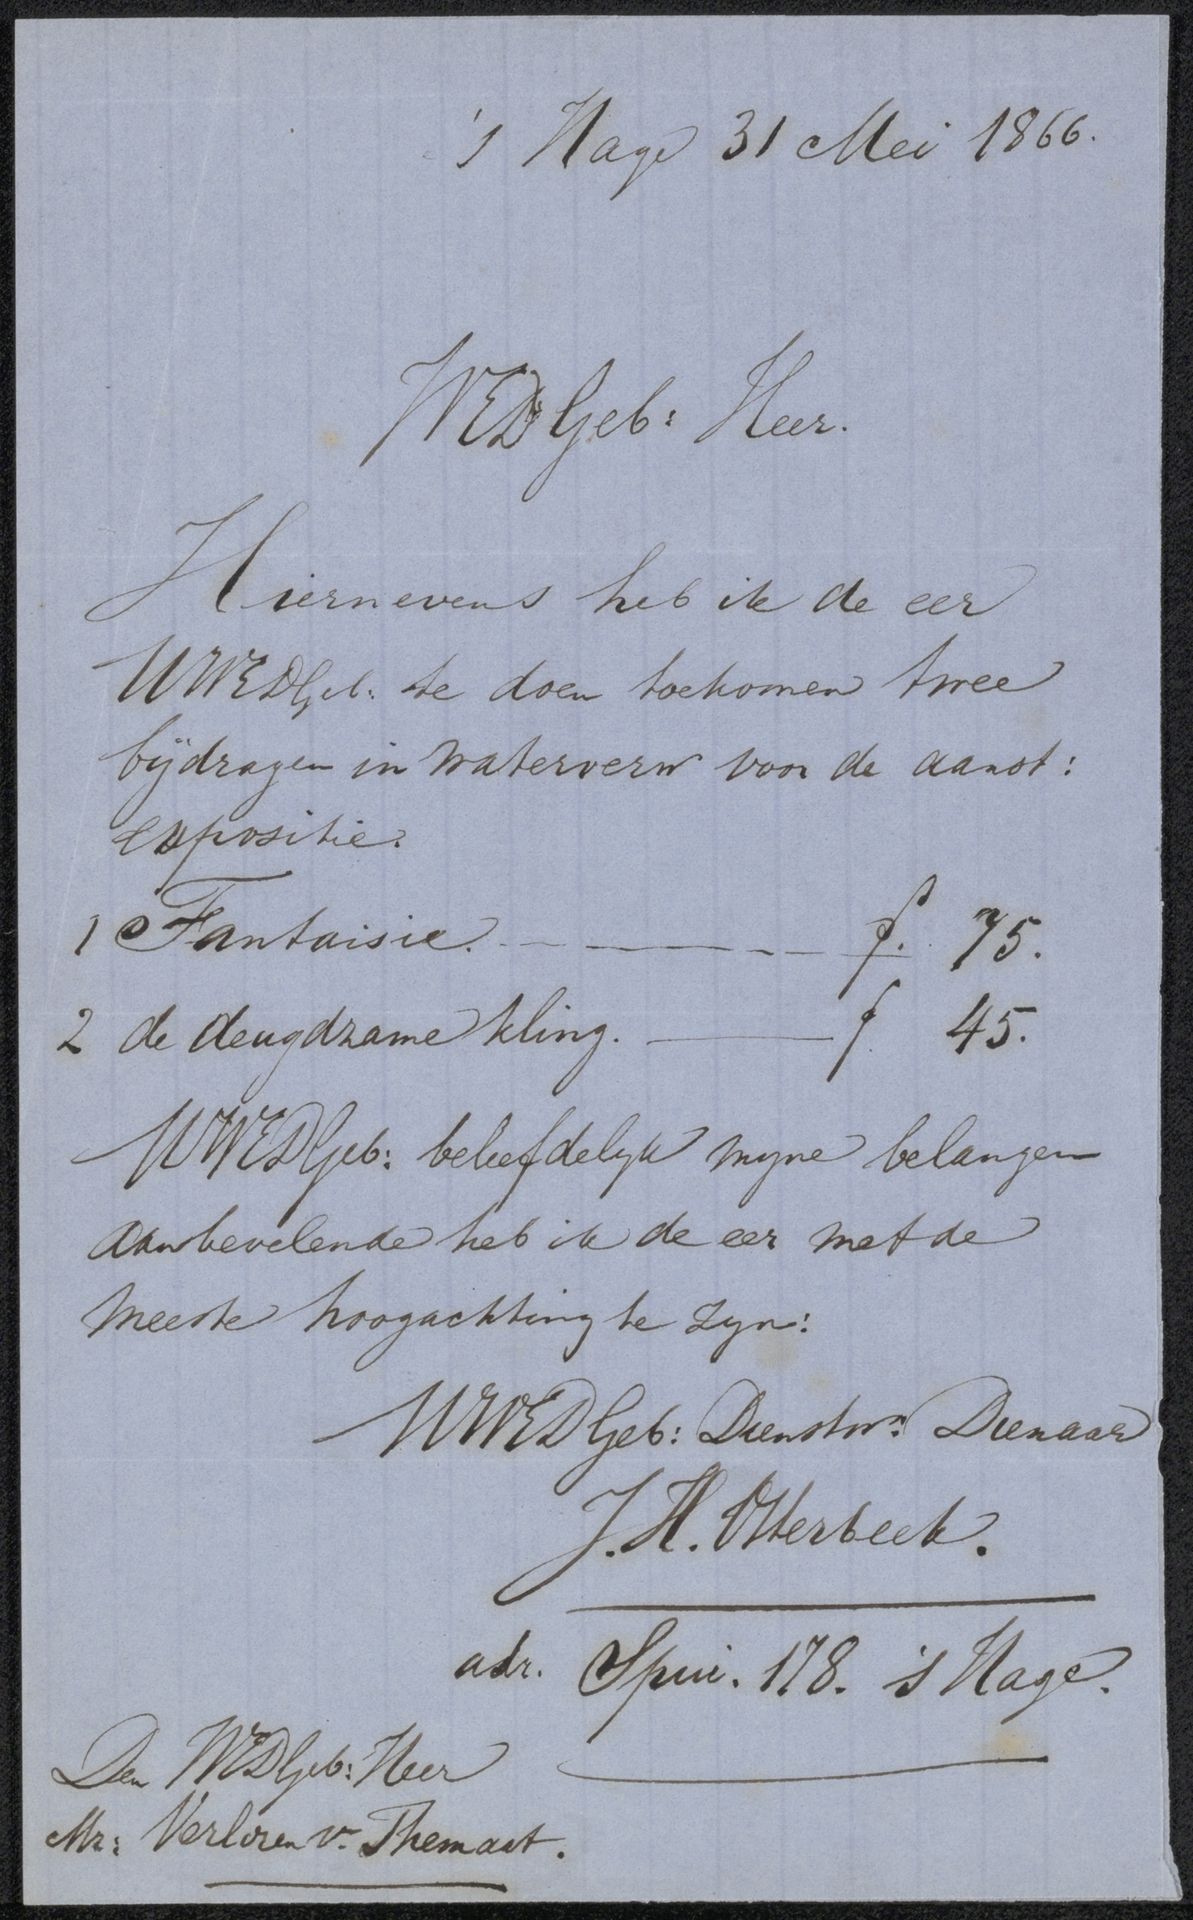 's Hage 31 Mei 1866.
WEDGeb: Heer.
Hiernevens heb ik de eer
UWEDGeb: te doen toekomen twee
bijdragen in waterverw voor de aanst:
expositie.
1 Fantaisie. f. 75.
2 de deugdzame kling. f 45.
UWEDGeb: beleefdelyk myne belangen
aanbevelende heb ik de eer met de
meeste hoogachting te zyn:
UWEDGeb: Dienstw: Dienaar
J. H. Otterbeek.
adr. Spui. 178. 's Hage.
Den WEDGeb: Heer
Mr: Verloren v. Themaat.